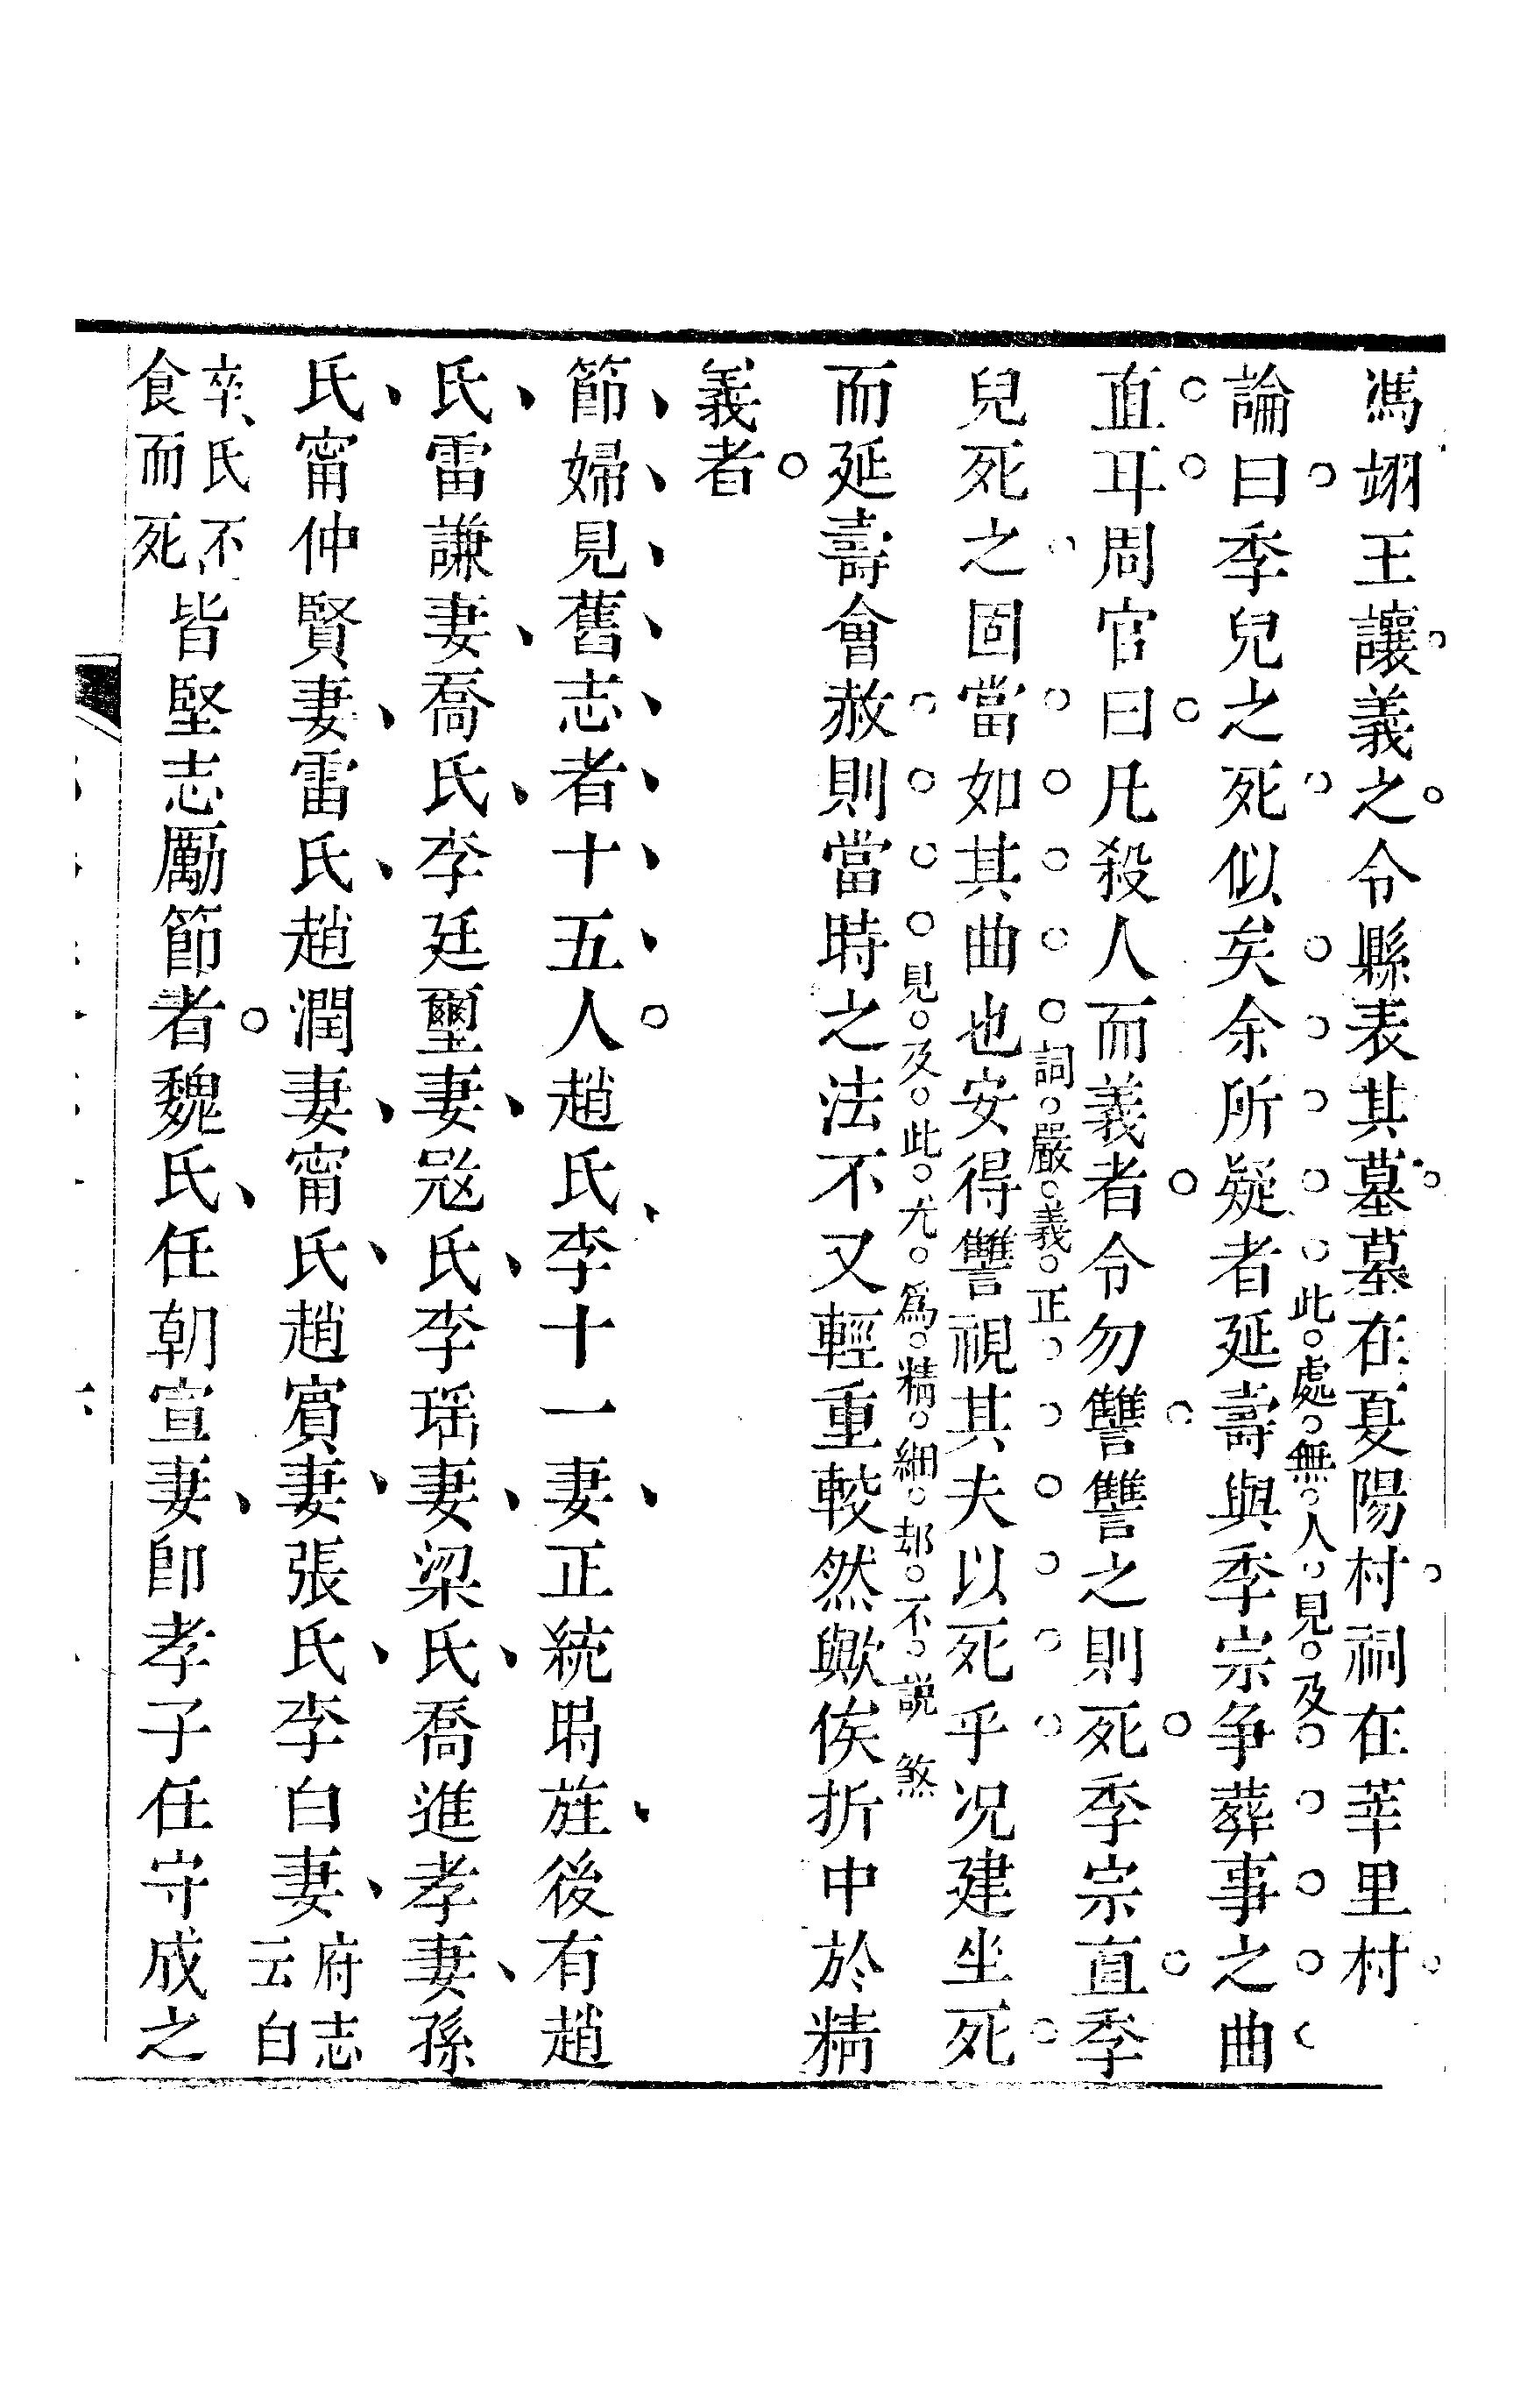 馮翊王讓義之令縣表其墓墓在夏陽村祠在莘里村
論曰季兒之死似矣余所疑者延壽與季宗争葬事之曲
此處無人見及
直耳周官曰凡殺人而義者令勿讐讐之則死季宗直季
兒死之固當如其曲也安得讐視其夫以死乎况建坐死
詞嚴義正
而延壽會赦則當時之法不又輕重較然歟俟折中於精
見及此尤爲精細却不説煞
義者
節婦見舊志者十五人趙氏李十一妻正統時旌後有趙
氏雷謙妻喬氏李廷璽妻冦氏李瑶妻梁氏喬進孝妻孫
氏甯仲賢妻雷氏趙潤妻甯氏趙賓妻張氏李白妻府志云白
卒氏不食而死皆堅志勵節者魏氏任朝宣妻卽孝子任守成之